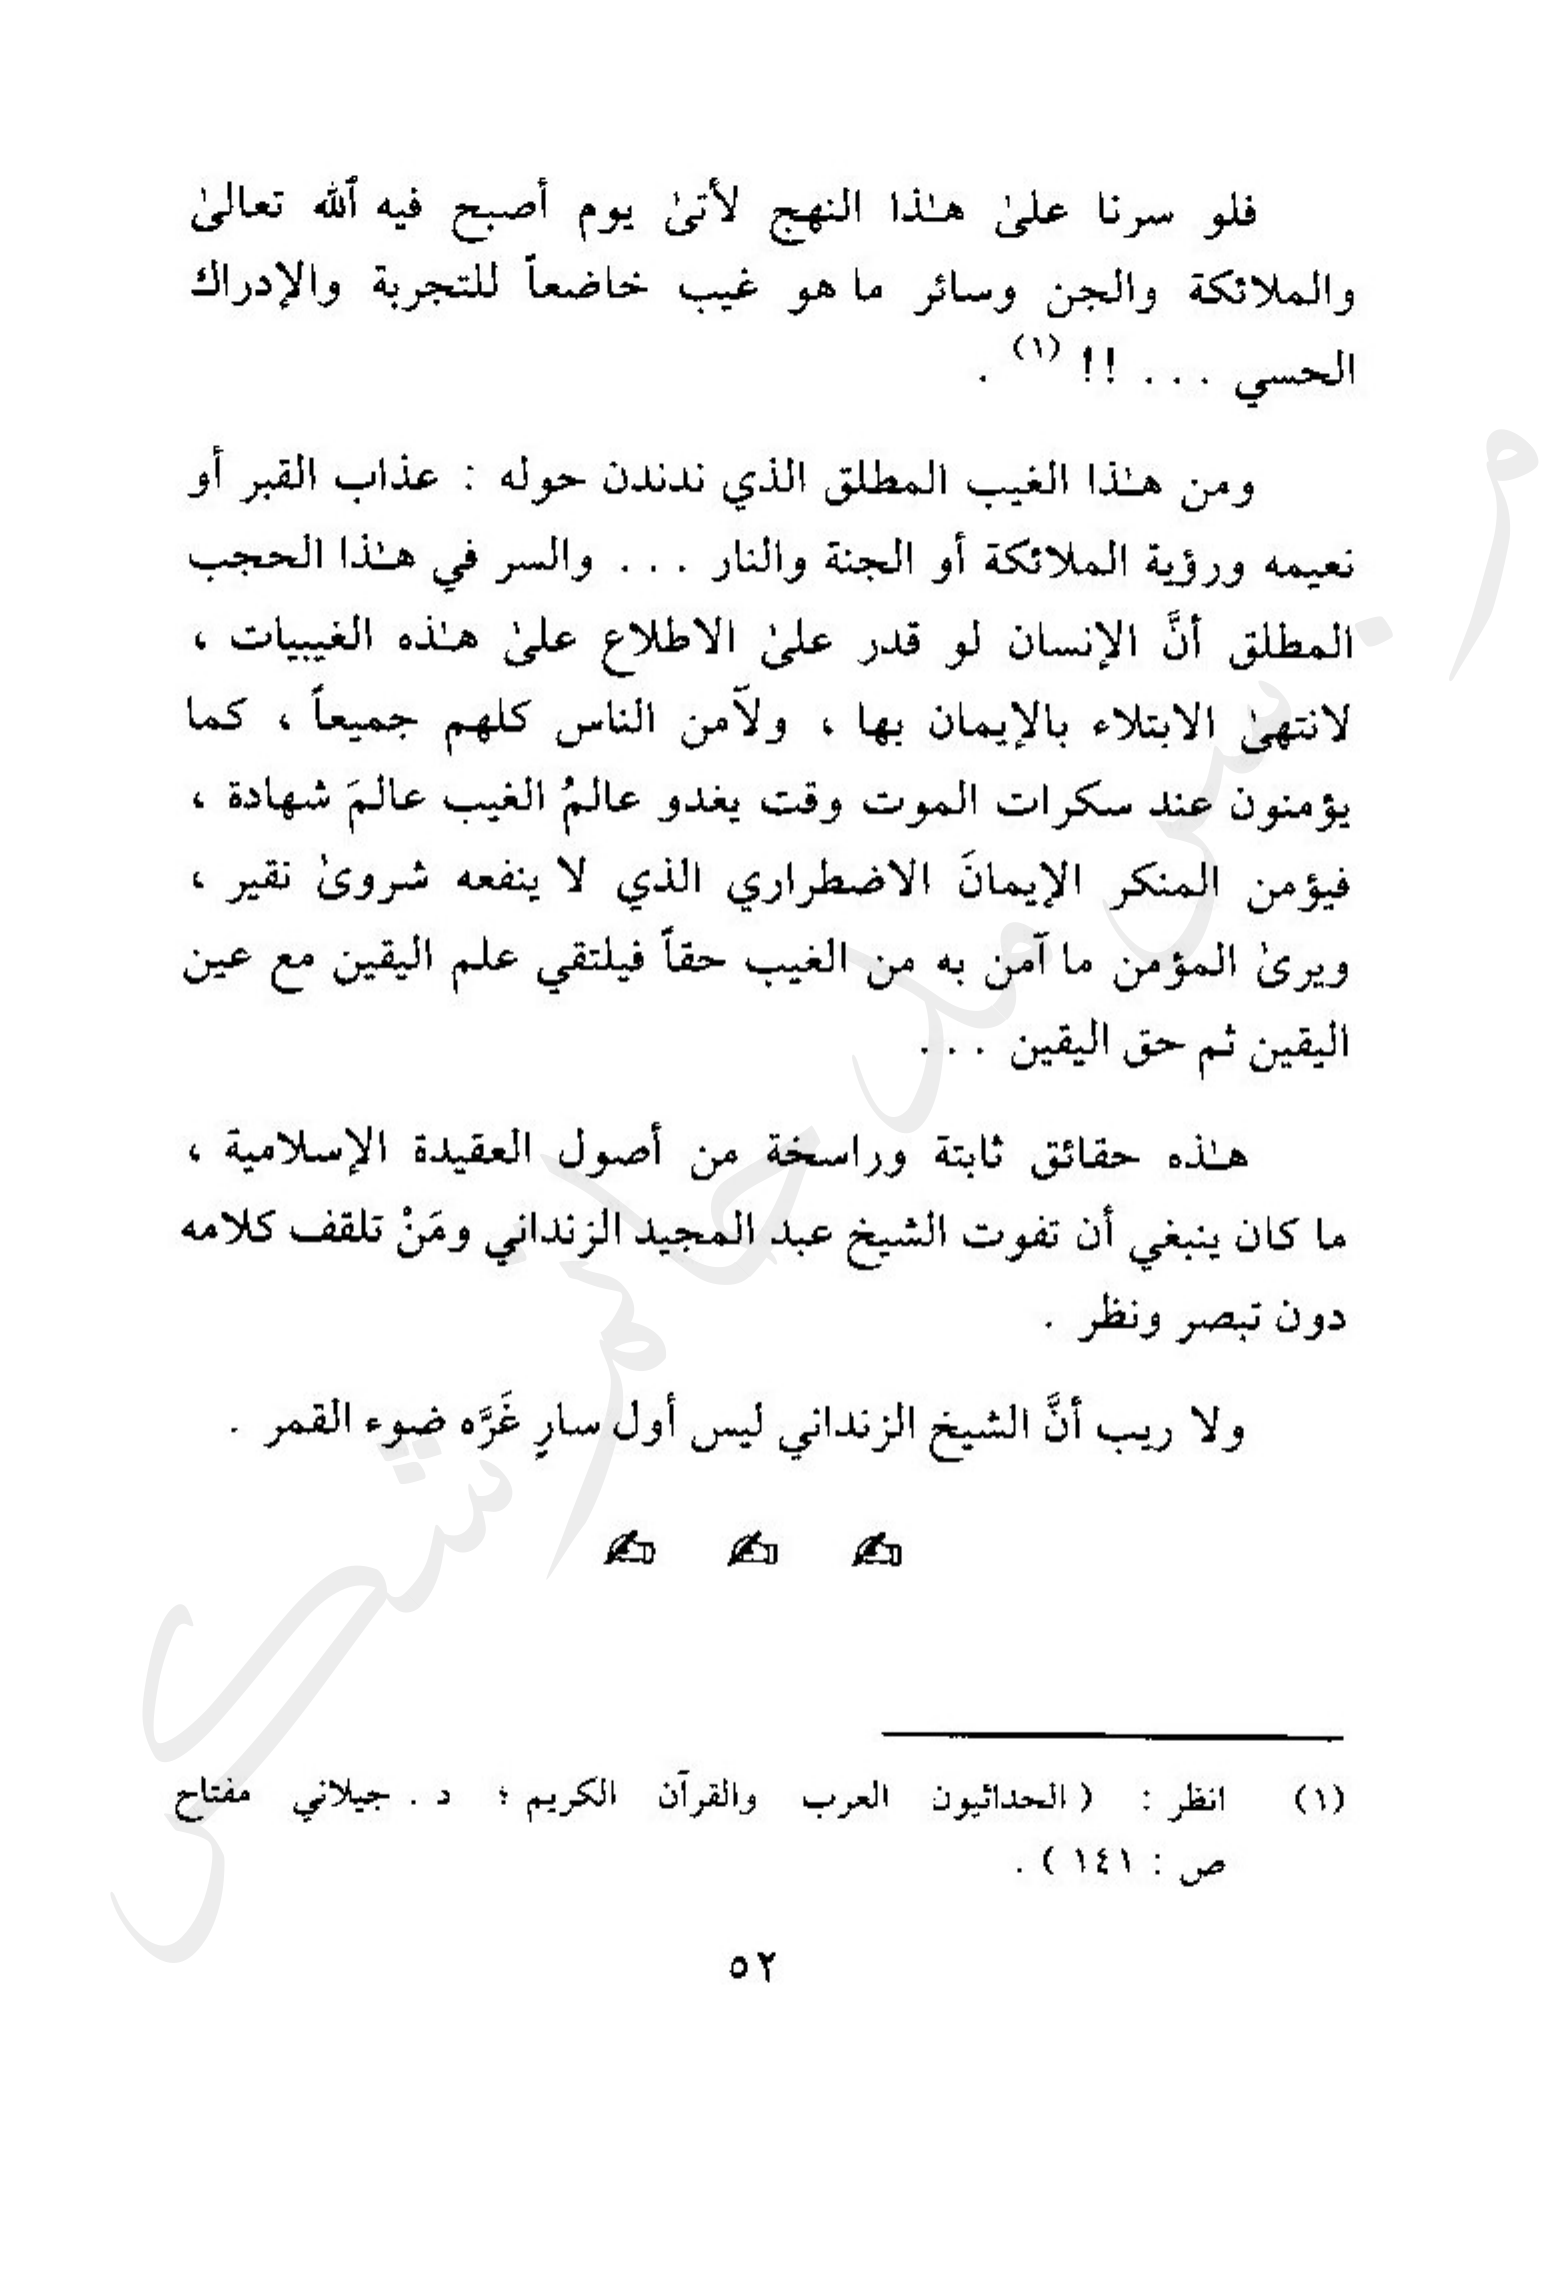 فلو سرنا علىٰ هـٰذا النهج لأتىٰ يوم أصبح فيه ٱلله تعالىٰ
والملائكة والجن وسائر ما هو غيب خاضعاً للتجربة والإدراك
الحسي ... !! (١) .
ومن هـٰذا الغيب المطلق الذي ندندن حوله : عذاب القبر أو
نعيمه ورؤية الملائكة أو الجنة والنار ... والسر في هـٰذا الحجب
المطلق أنَّ الإنسان لو قدر علىٰ الاطلاع علىٰ هـٰذه الغيبيات ،
لانتهىٰ الابتلاء بالإيمان بها ، ولآمن الناس كلهم جميعاً ، كما
يؤمنون عند سكرات الموت وقت يغدو عالمُ الغيب عالمَ شهادة ،
فيؤمن المنكر الإيمانَ الاضطراري الذي لا ينفعه شروىٰ نقير ،
ويرىٰ المؤمن ما آمن به من الغيب حقاً فيلتقي علم اليقين مع عين
اليقين ثم حق اليقين ...
هـٰذه حقائق ثابتة وراسخة من أصول العقيدة الإسلامية ،
ما كان ينبغي أن تفوت الشيخ عبد المجيد الزنداني ومَنْ تلقف كلامه
دون تبصر ونظر .
ولا ريب أنَّ الشيخ الزنداني ليس أول سارٍ غَرَّه ضوء القمر .
(١) انظر : ( الحداثيون العرب والقرآن الكريم ؛ د . جيلاني مفتاح
ص : ١٤١ ) .
٥٢